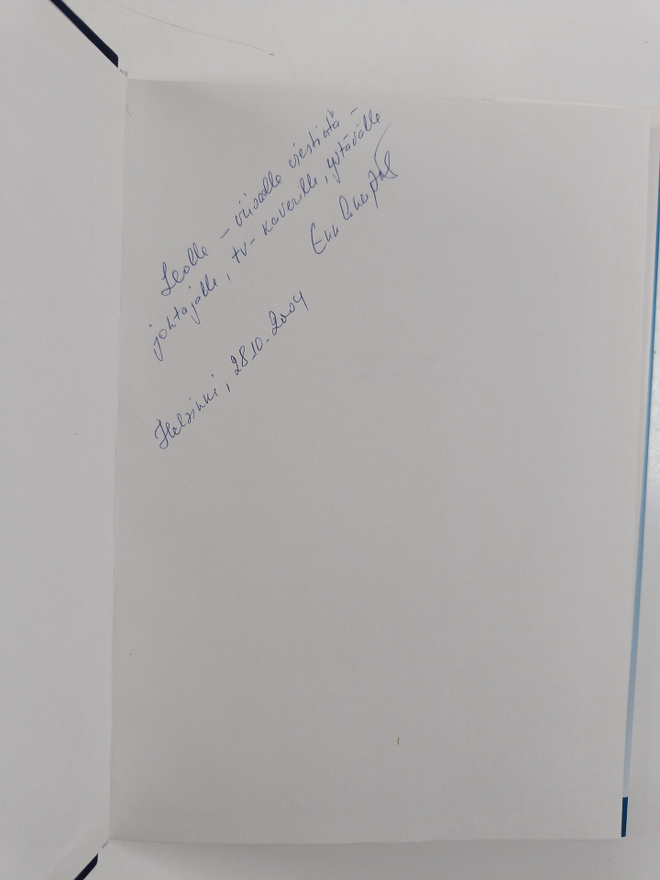 Leolle – viisaalle viestintä-
johtajalle, tv-kaverille, ystävälle
Helsinki, 28.10.2004